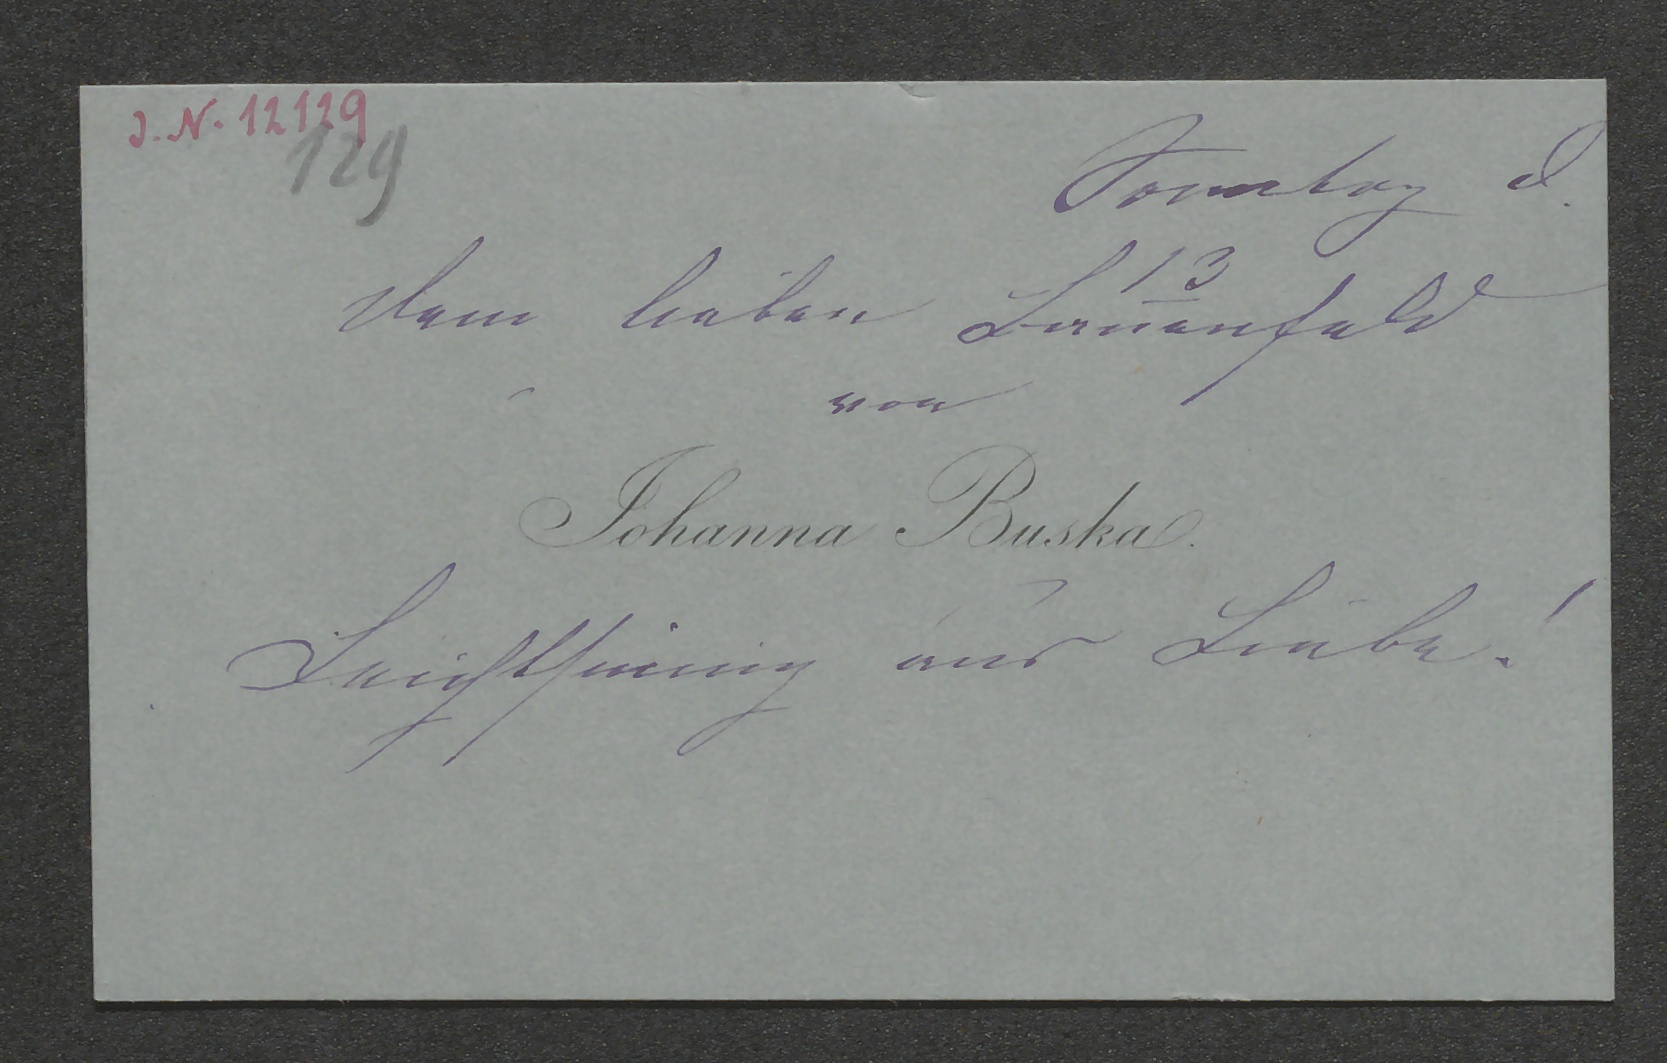 J. N. 12129
129
Sonntag d.
13
Dem lieben Lewenfeld
von
Johanna Buska.
Leichtsinnig aus Liebe!